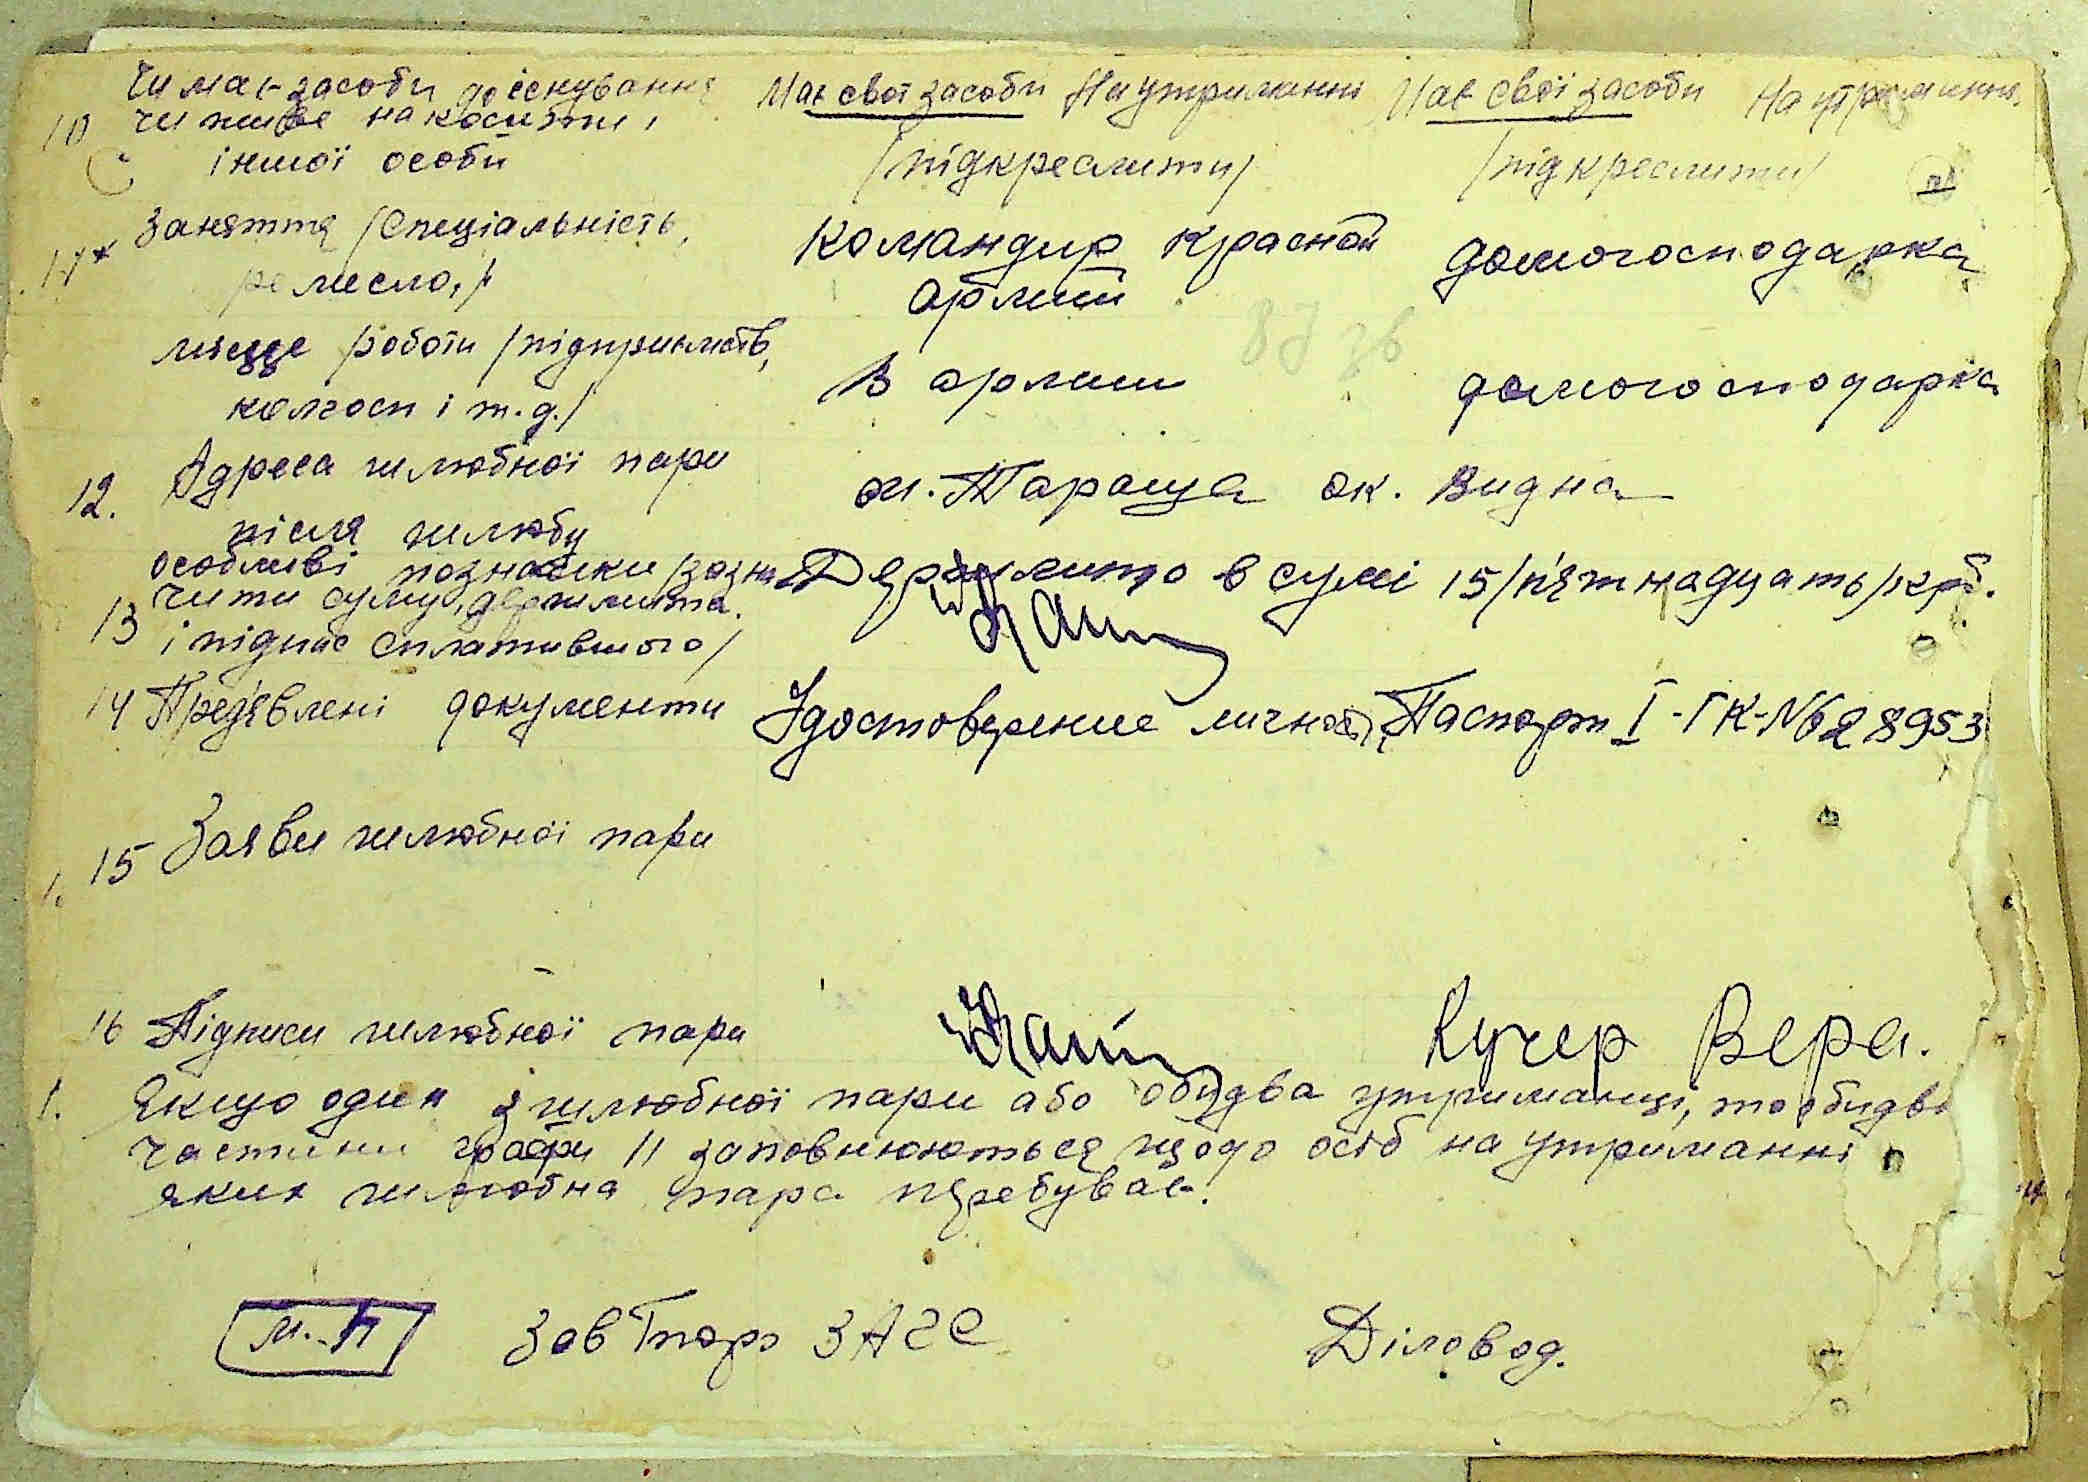 10 Чи має засоби до існування Має свої засоби На утриманні Має свої засоби На утриманні
чи живе на кошти
іншої особи /підкреслити/ /підкреслити/
11* Заняття /Спеціальність, Командир красной домогосподарка
ремесло,/ армии
місце роботи /підприємств, В армии домогосподарка
колгосп і т.д./
12. Адреса шлюбної пари м. Тараща ок. Видна
після шлюбу
13 особливі позначки /зазна Держмито в сумі 15/п'ятнадцать/крб.
чити суму держмита
і підпис сплатившого/
14 Пред'явлені документи Удостоверение личност, Паспорт I-ГК-№628953
15 Заяви шлюбної пари
16 Підписи шлюбної пари Кучер Вера.
1. Якщо один з шлюбної пари або обидва утриманці, то обидві
частини графи 11 заповнюються щодо осіб на утриманні
яких шлюбна пара перебуває.
М.П Зав ЗАГС Діловод.